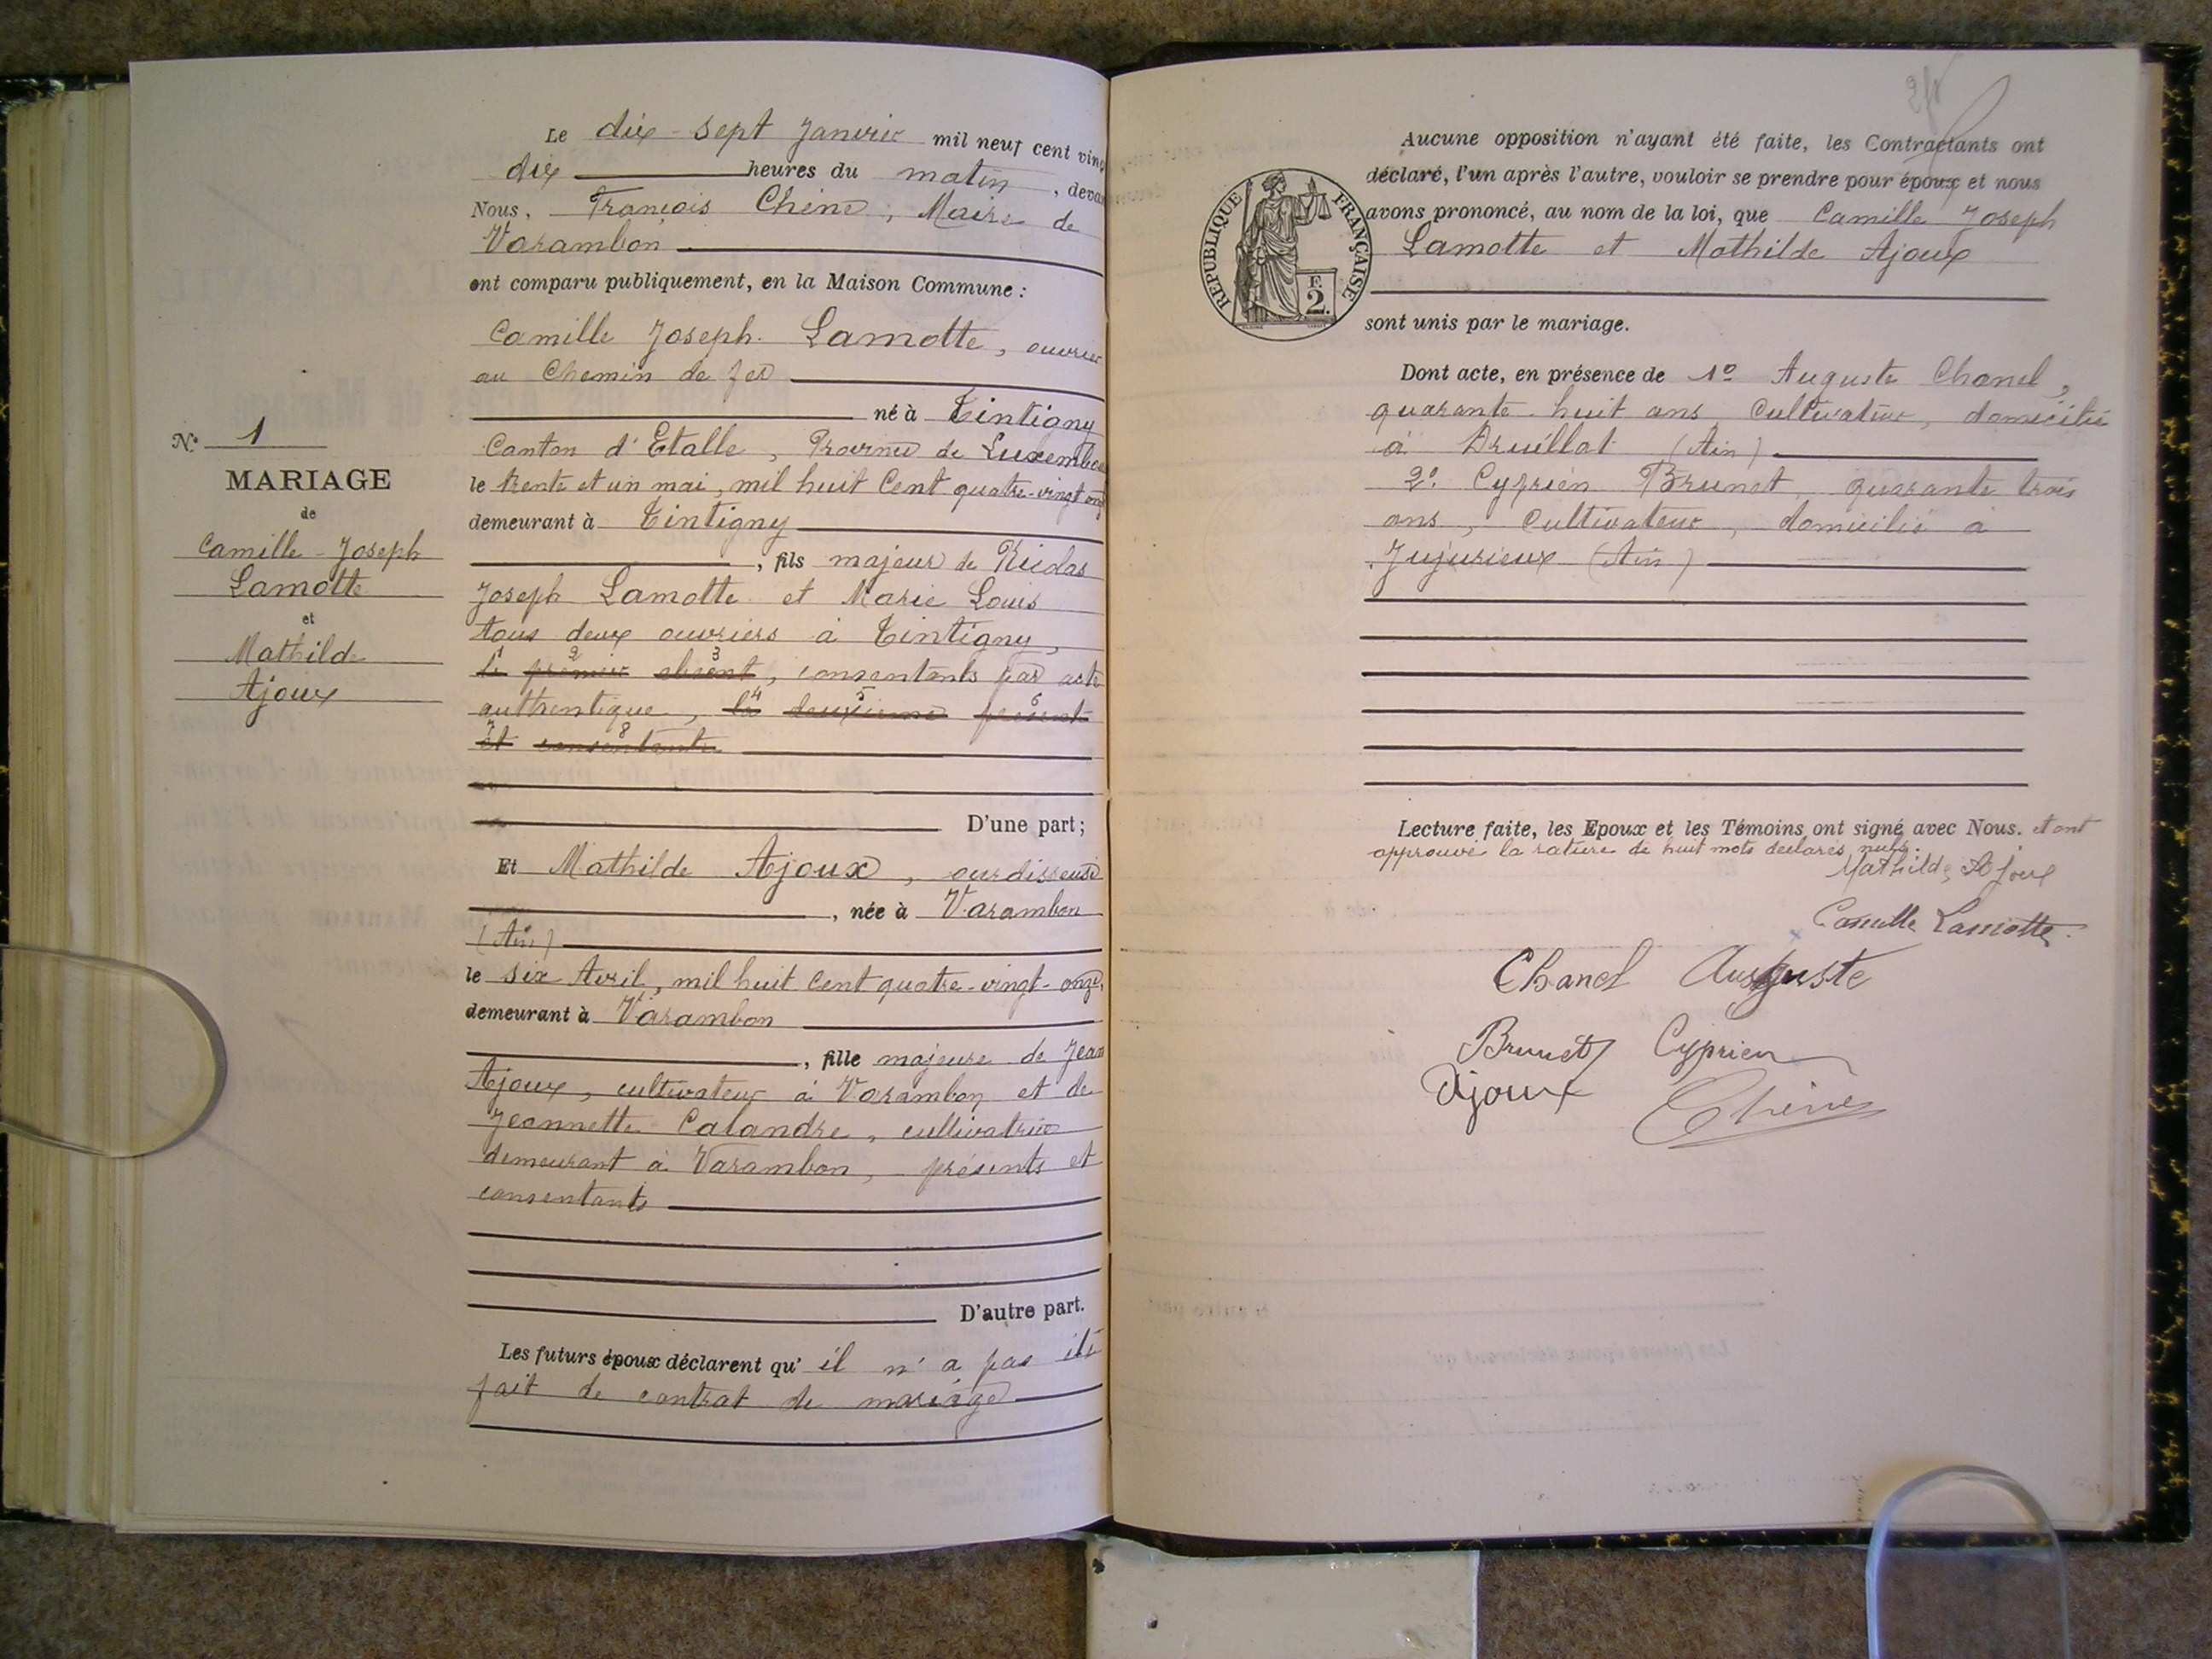 Le dix-sept Janvier mil neuf cent vin
dix heures du matin, devan
Nous, François Chêne, Maire de
Varambon
ont comparu publiquement, en la Maison Commune :
Camille Joseph Lamotte, ouvrier
au Chemin de fer
né à Tintigny
Canton d'Etalle, Province de Luxembou
le trente et un mai, mil huit Cent quatre-vingt onz
demeurant à Tintigny
, fils majeur de Nicolas
Joseph Lamotte et Marie Louis
tous deux ouvriers à Tintigny,
1 2 3
le premier absent, consentants par acte
4 5 6
authentique, la deuxième présente
7 8
et consentante
D'une part ;
Et Mathilde Ajoux, ourdisseuse
, née à Varambon
(Ain)
le six Avril, mil huit cent quatre-vingt-onze,
demeurant à Varambon
, fille majeure de Jean
Ajoux, cultivateur à Varambon et de
Jeannette Calandre, cultivatrice
demeurant à Varambon, présents et
consentants
D'autre part.
Les futurs époux déclarent qu'il n'a pas été
fait de contrat de mariage
N° 1
MARIAGE
de
Camille-Joseph
Lamotte
et
Mathilde
Ajoux
REPUBLIQUE FRANÇAISE
F.
2.
Aucune opposition n'ayant été faite, les Contractants ont
déclaré, l'un après l'autre, vouloir se prendre pour époux et nous
avons prononcé, au nom de la loi, que Camille Joseph
Lamotte et Mathilde Ajoux
sont unis par le mariage.
Dont acte, en présence de 1° Auguste Chanel,
quarante-huit ans, Cultivateur, domicilié
à Druillat (Ain)
2° Cyprien Brunet, quarante trois
ans, Cultivateur, domicilié à
Jujurieux (Ain)
Lecture faite, les Epoux et les Témoins ont signé avec Nous. et ont
approuvé la rature de huit mots déclarés nuls.
Mathilde Ajoux
Camille Lamotte
Chanel Auguste
Brunet Cyprien
Ajoux
Chêne